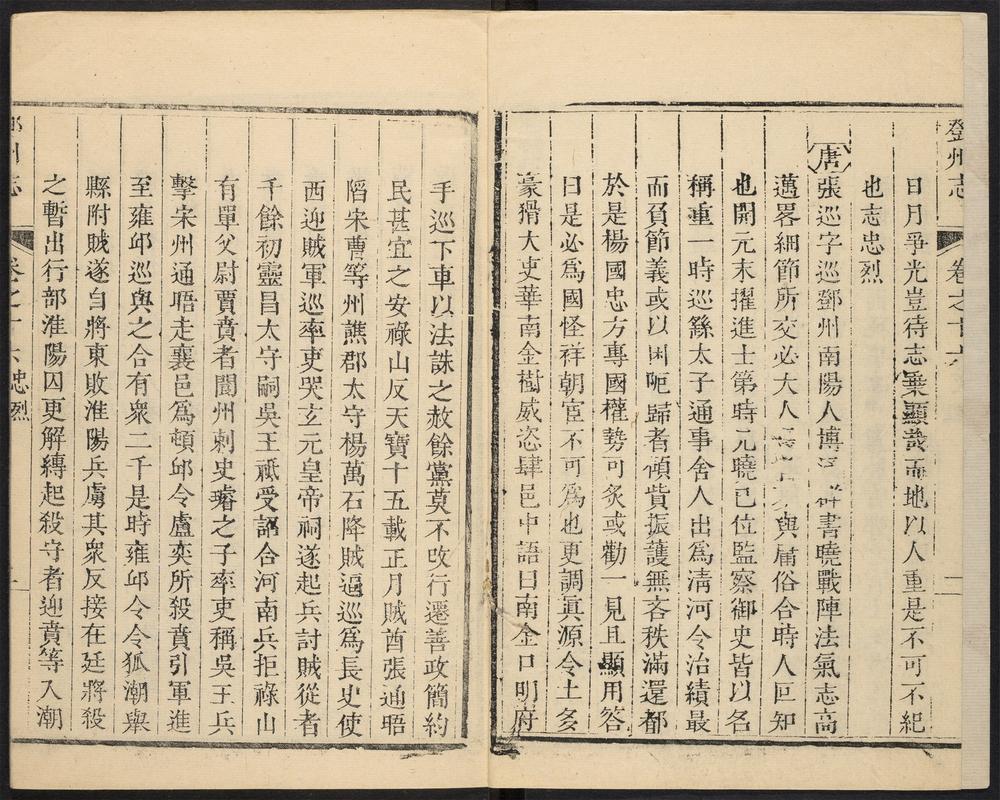 鄧州志
卷之十六
日月爭光豈待志乗顯哉而地以人重是不可不紀
也志忠烈
唐
張巡字巡鄧州南陽人博 羣書曉戰陣法氣志高
邁畧細節所交必大人 與庸俗合時人叵知
也開元末擢進士第時兄曉已位監察御史皆以名
稱重一時巡繇太子通事舍人出為淸河令治績最
而負節義或以困阨歸者傾貲振護無吝秩滿還都
於是楊國忠方專國權勢可炙或勸一見且顯用答
曰是必為國怪祥朝宦不可為也更調眞源令土多
豪猾大吏華南金樹威恣肆邑中語曰南金口明府
手巡下車以法誅之赦餘黨莫不改行遷善政簡約
民甚宜之安祿山反天寶十五載正月賊酋張通晤
䧟宋曹等州譙郡太守楊萬石降賊逼巡為長史使
西迎賊軍巡率吏哭玄元皇帝祠遂起兵討賊從者
千餘初靈昌太守嗣吳王祗受詔合河南兵拒祿山
有單父尉賈賁者閬州刺史璿之子率吏稱吳王兵
擊宋州通晤走襄邑為頓邱令盧奕所殺賁引軍進
至雍邱巡與之合有衆二千是時雍邱令令狐潮舉
縣附賊遂自將東敗淮陽兵虜其衆反接在廷將殺
之暫出行部淮陽囚更解縛起殺守者迎賁等入潮
州志
卷之十六
忠烈
一